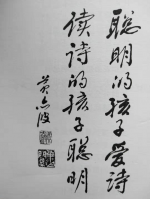 聪明的孩子爱诗
读诗的孩子聪明
黄亦波